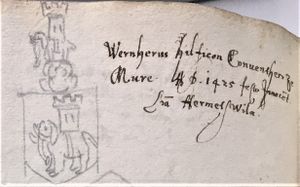 Wernherus Hilficon Conuenther Zu
Mure A° D. 1425 festo Innocent
Hermetswila